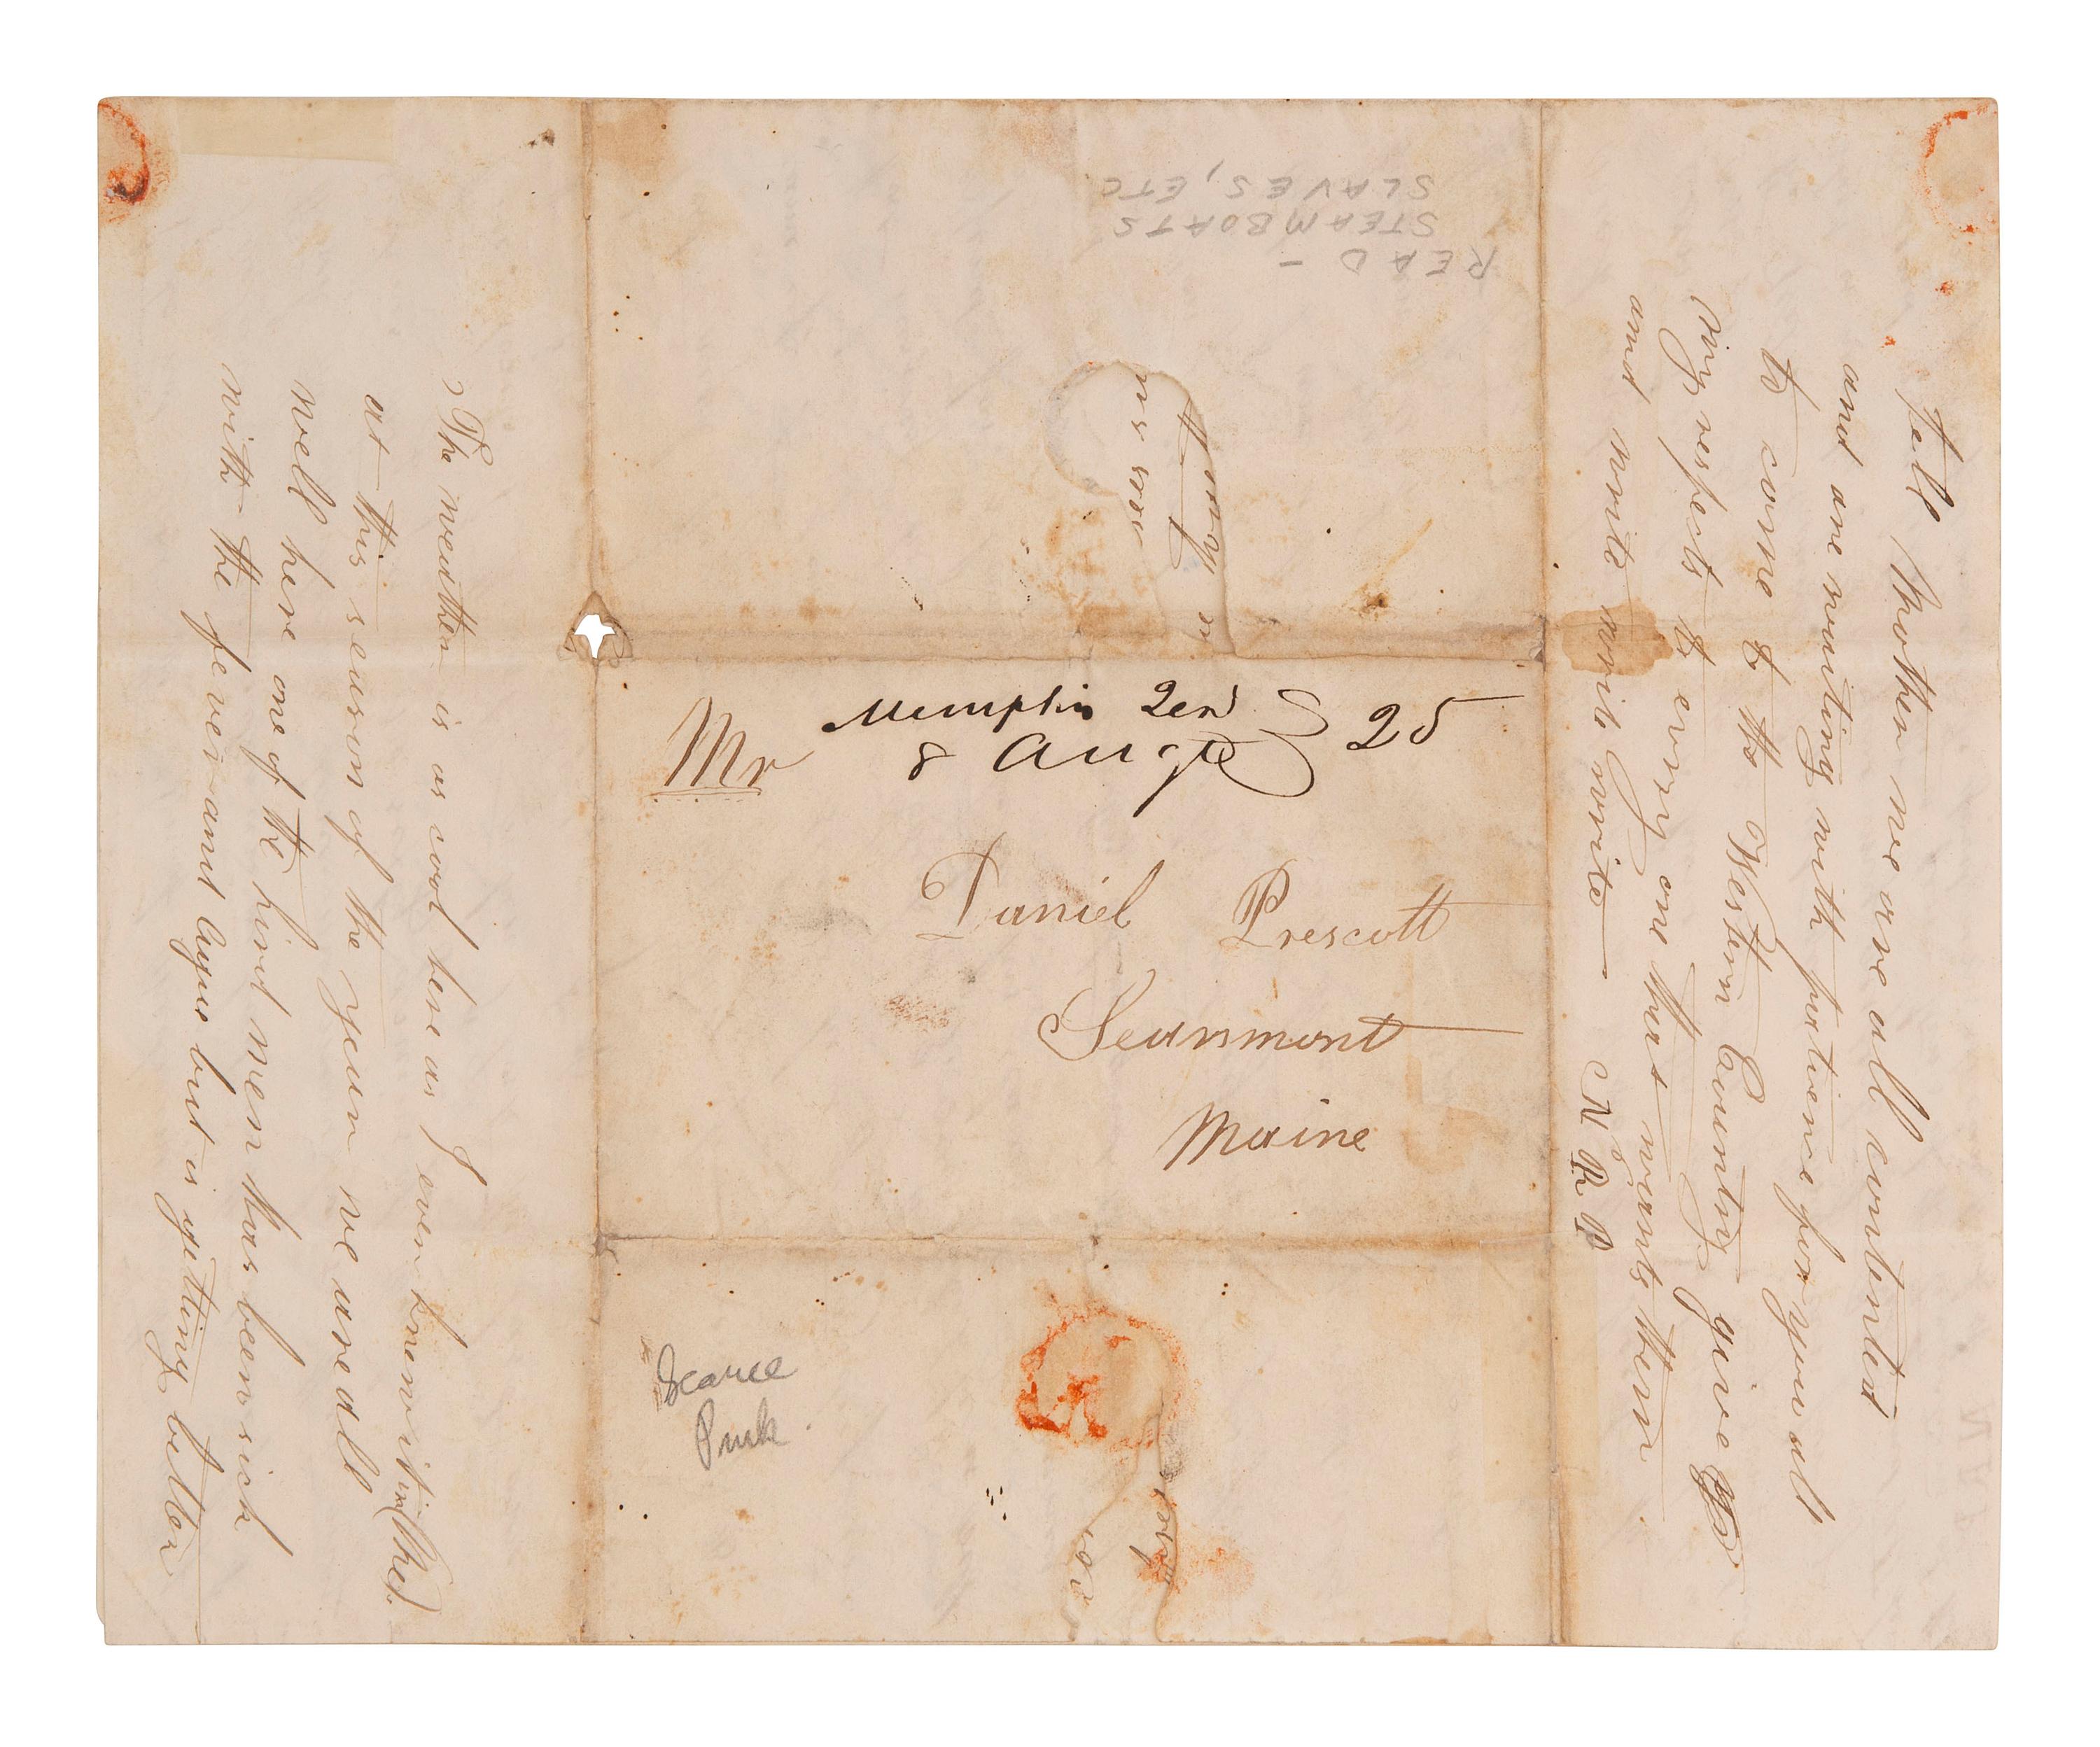 Tell Mother we are all contented
and are waiting with partience for you all
to come to the Western Country give
my respects to every one thats wants them
and write write write
N R P
READ -
STEAMBOATS
SLAVES, ETC
Memphis Ten
8 Augt
25
Mr
Daniel Prescott
Searsmont
Maine
Scarce
Pmk.
The weather is as cool here as I ever knew it in (Me)
at this season of the year we are all
well here one of the hird men has been sick
with the fever and Ague but is gitting better